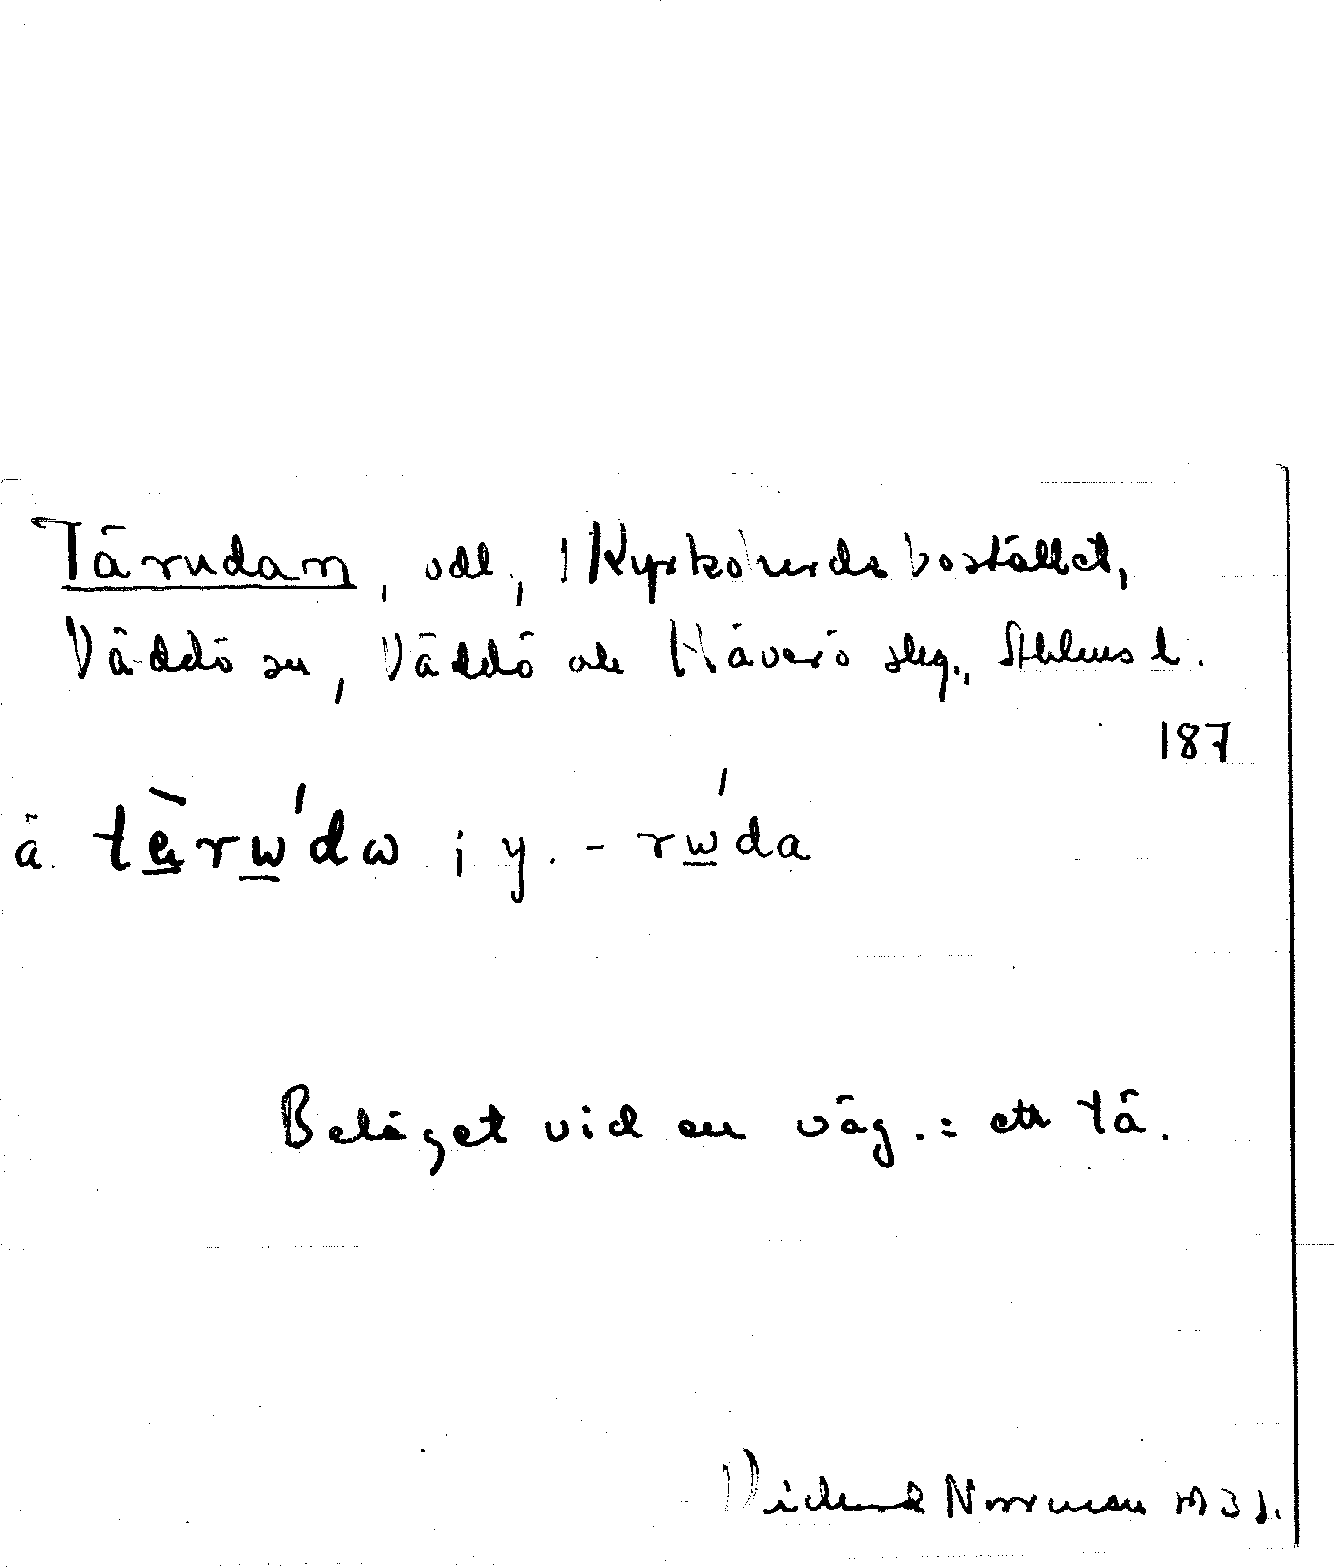 Tärudan, odl., Kyrkoherdebostället,
Väddö sn, Väddö och Häverö skg., Sthlms l.
187
ä. tèrω'dω ; y. - rω'da
Beläget vid en väg. = ett tä.
Norrman